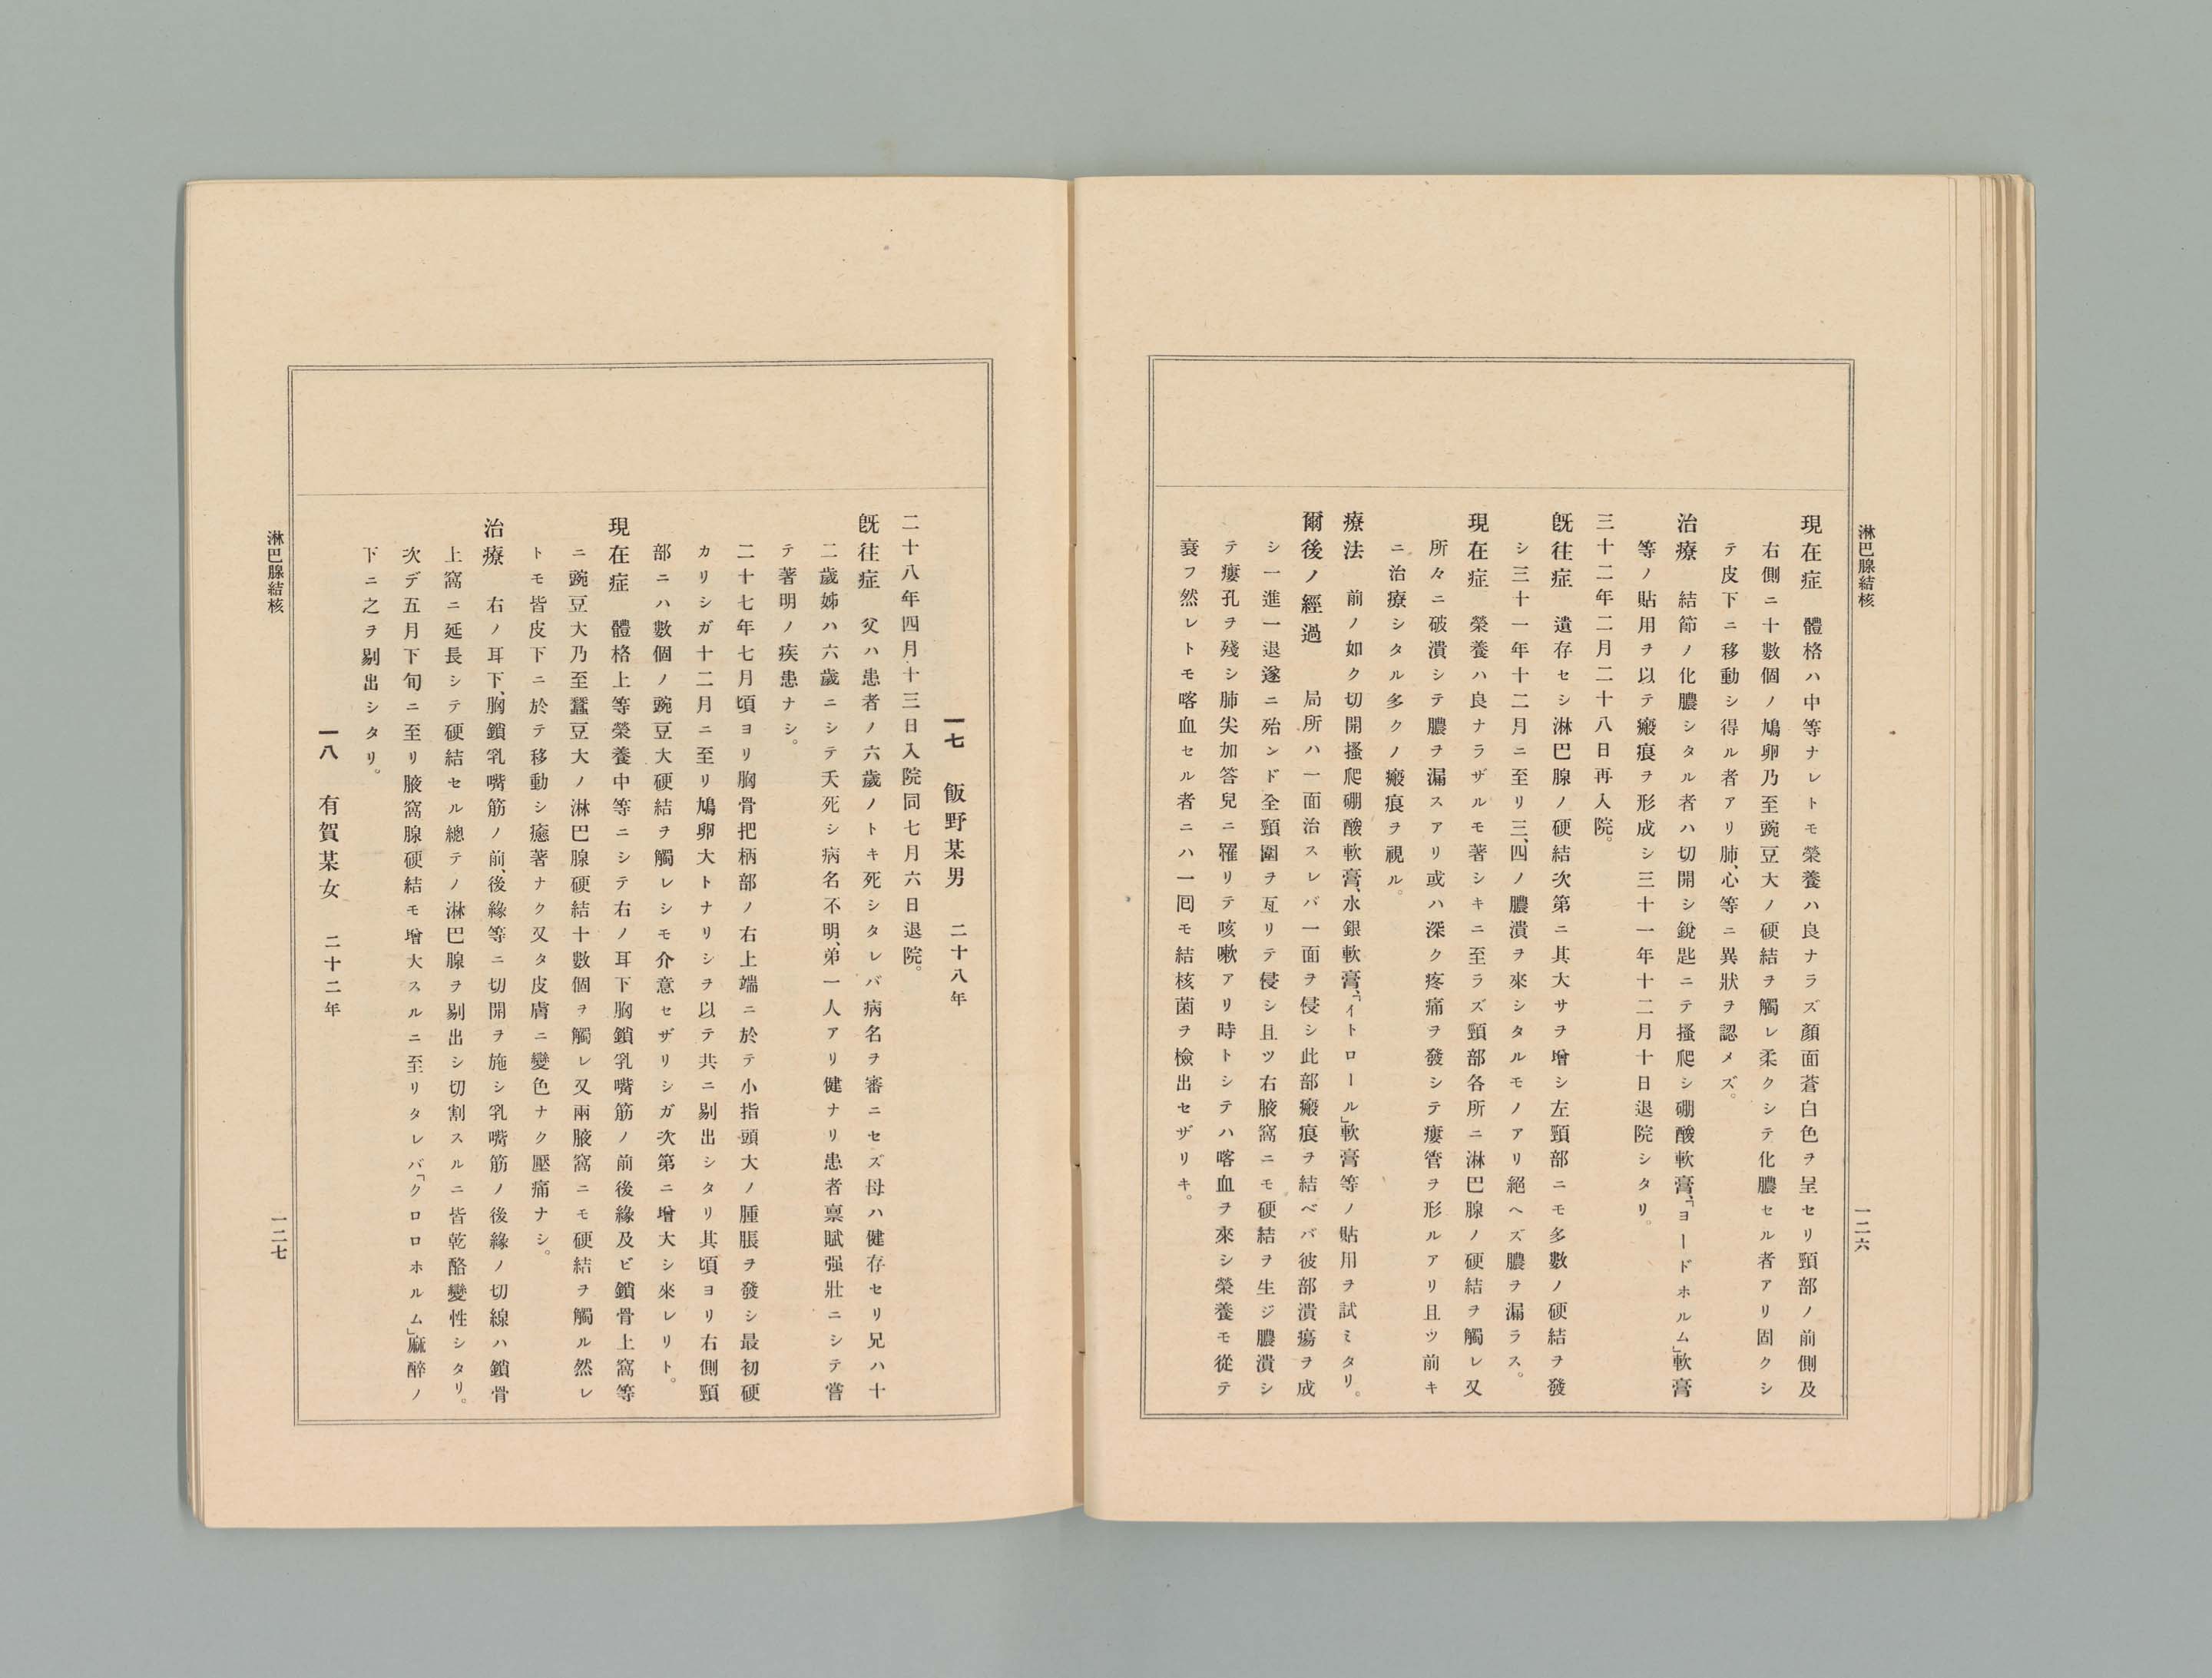 淋巴腺結核
一二六
現在症　體格ハ中等ナレトモ榮養ハ良ナラズ顏面蒼白色ヲ呈セリ頸部ノ前側及
右側ニ十數個ノ鳩卵乃至豌豆大ノ硬結ヲ觸レ柔クシテ化膿セル者アリ固クシ
テ皮下ニ移動シ得ル者アリ肺、心等ニ異狀ヲ認メズ。
治療　結節ノ化膿シタル者ハ切開シ銳匙ニテ搔爬シ硼酸軟膏、「ヨードホルム」軟膏
等ノ貼用ヲ以テ瘢痕ヲ形成シ三十一年十二月十日退院シタリ。
三十二年二月二十八日再入院。
旣往症　遺存セシ淋巴腺ノ硬結次第ニ其大サヲ增シ左頸部ニモ多數ノ硬結ヲ發
シ三十一年十二月ニ至リ三、四ノ膿潰ヲ來シタルモノアリ絕ヘズ膿ヲ漏ラス。
現在症　榮養ハ良ナラザルモ著シキニ至ラズ頸部各所ニ淋巴腺ノ硬結ヲ觸レ又
所々ニ破潰シテ膿ヲ漏スアリ或ハ深ク疼痛ヲ發シテ瘻管ヲ形ルアリ且ツ前キ
ニ治療シタル多クノ瘢痕ヲ視ル。
療法　前ノ如ク切開搔爬硼酸軟膏、水銀軟膏、「イトロール」軟膏等ノ貼用ヲ試ミタリ。
爾後ノ經過　局所ハ一面治スレバ一面ヲ侵シ此部瘢痕ヲ結ベバ彼部潰瘍ヲ成
シ一進一退遂ニ殆ンド全頸圍ヲ亙リテ侵シ且ツ右腋窩ニモ硬結ヲ生ジ膿潰シ
テ瘻孔ヲ殘シ肺尖加答兒ニ罹リテ咳嗽アリ時トシテハ喀血ヲ來シ榮養モ從テ
衰フ然レトモ喀血セル者ニハ一囘モ結核菌ヲ檢出セザリキ。
一七　飯野某男　二十八年
二十八年四月十三日入院同七月六日退院。
旣往症　父ハ患者ノ六歲ノトキ死シタレバ病名ヲ審ニセズ母ハ健存セリ兄ハ十
二歲姊ハ六歲ニシテ夭死シ病名不明、弟一人アリ健ナリ患者稟賦强壯ニシテ嘗
テ著明ノ疾患ナシ。
二十七年七月頃ヨリ胸骨把柄部ノ右上端ニ於テ小指頭大ノ腫脹ヲ發シ最初硬
カリシガ十二月ニ至リ鳩卵大トナリシヲ以テ共ニ剔出シタリ其頃ヨリ右側頸
部ニハ數個ノ豌豆大硬結ヲ觸レシモ介意セザリシガ次第ニ增大シ來レリト。
現在症　體格上等榮養中等ニシテ右ノ耳下胸鎖乳嘴筋ノ前後緣及ビ鎖骨上窩等
ニ豌豆大乃至蠶豆大ノ淋巴腺硬結十數個ヲ觸レ又兩腋窩ニモ硬結ヲ觸ル然レ
トモ皆皮下ニ於テ移動シ癒著ナク又タ皮膚ニ變色ナク壓痛ナシ。
治療　右ノ耳下、胸鎖乳嘴筋ノ前、後緣等ニ切開ヲ施シ乳嘴筋ノ後緣ノ切線ハ鎖骨
上窩ニ延長シテ硬結セル總テノ淋巴腺ヲ剔出シ切割スルニ皆乾酪變性シタリ。
次デ五月下旬ニ至リ腋窩腺硬結モ增大スルニ至リタレバ「クロロホルム」麻醉ノ
下ニ之ヲ剔出シタリ。
一八　有賀某女　二十二年
淋巴腺結核
一二七